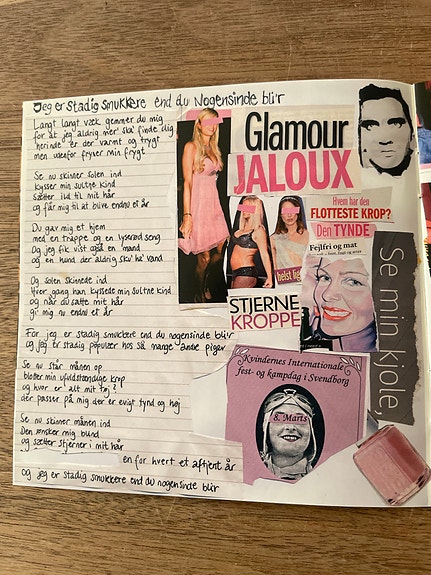 Jeg er stadig smukkere end du Nogensinde bli'r
Langt langt væk gemmer du mig
for at jeg aldrig mer' ska' finde dig
'herinde' er der varmt og trygt
men udenfor fryser min frygt
Se nu skinner solen ind
kysser min sultne kind
Sætter ild til mit hår
og får mig til at blive endnu et år
Du gav mig et hjem
med en trappe og en lyserød seng
og jeg fik vist også en mand
og en hund der aldrig sku' ha' vand
Og solen skinnede ind
hver gang han kyssede min sultne kind
og når du satte mit hår
gi' mig nu endnu et år
For jeg er stadig smukkere end du nogensinde bliv
og jeg er stadig populær hos så mange andre piger
Se nu står månen op
blotter min ufuldstændige krop
og hvor er alt mit tøj?
der passer på mig der er evigt tynd og høj
Se nu skinner månen ind
Den ønsker mig blind
og sætter stjerner i mit hår
en for hvert et aftjent år
og jeg er stadig smukkere end du nogensinde blir
Glamour
JALOUX
Hvem har den
FLOTTESTE KROP?
Den TYNDE
Fejlfri og mat
helst lig
STJERNE
KROPPE
Se min kjole,
Kvindernes Internationale
fest- og kampdag i Svendborg
8. Marts